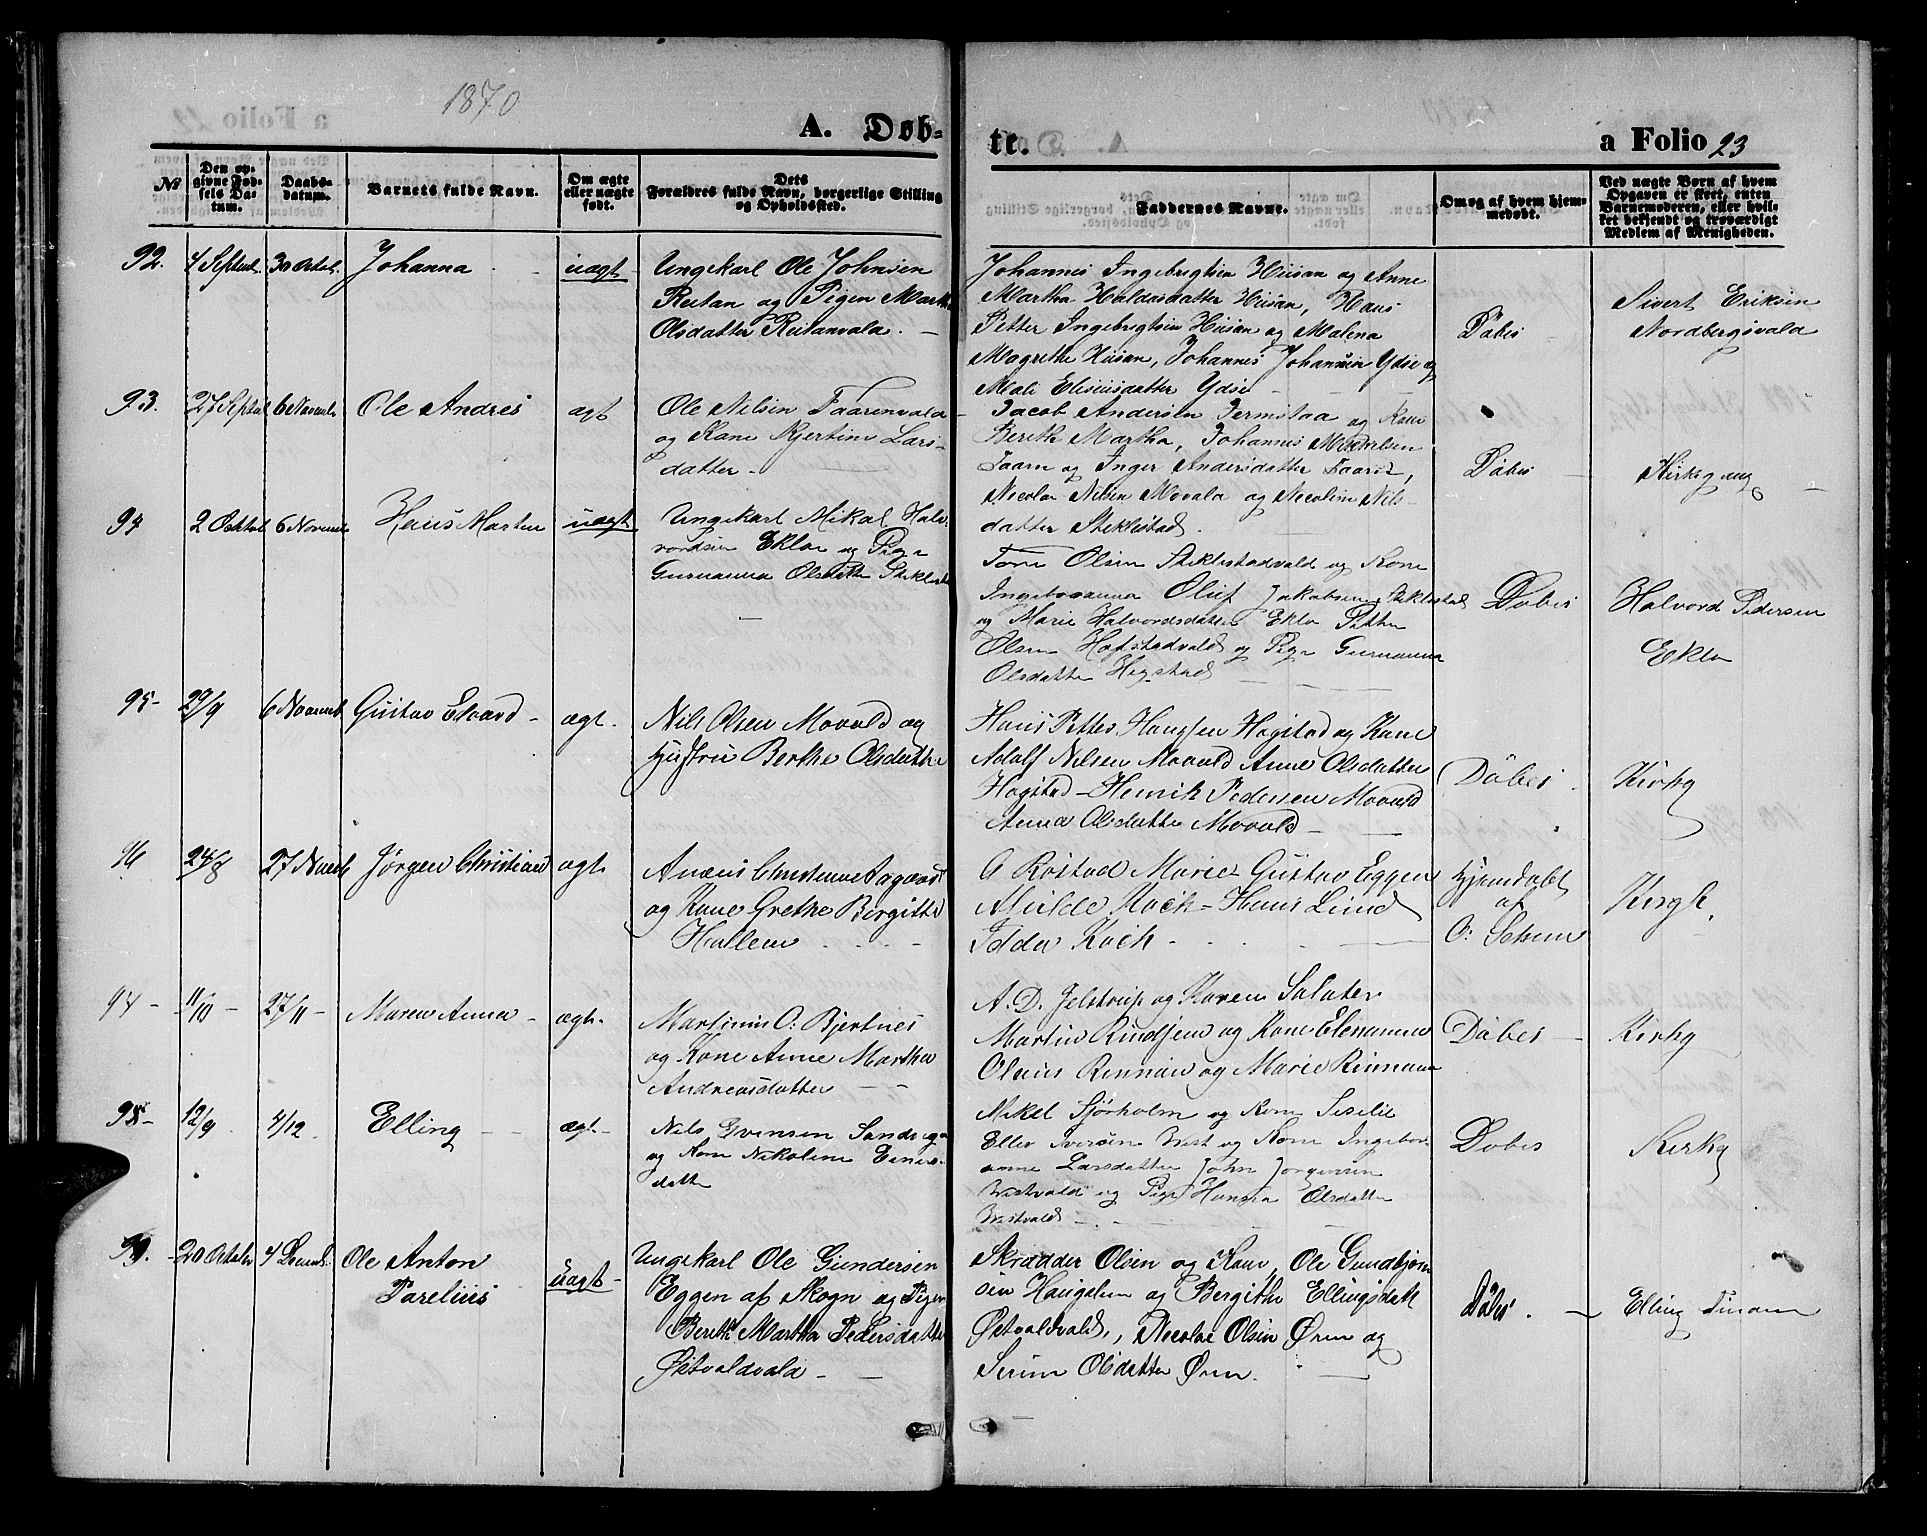 1870
A. Døb-
te.
a Folio 23
No
Den op-
givne Fød-
sels Da-
tum.
Daabs-
datum.
Barnets fulde Navn.
Om ægte
eller uægte
født.
Dets
Forældres fulde Navn, borgerlige Stilling
og Opholdssted.
Faddernes Navne.
Om og af hvem hjem-
medøbt.
Ved uægte Børn af hvem
Opgaven er skeet, enten
Barnemoderen, eller hvil-
ket bekjendt og troværdigt
Medlem af Menigheden.
92.
4 Septbr.
30 Octob.
Johanna
uægt
Ungekarl Ole Johnsen
Reitan og Pigen Martha
Olsdatter Reitanvald.
Johannes Ingebrigtsen Husan og Anne
Martha Haldosdatter Husan, Hans
Petter Ingebrigtsen Husan og Malena
Magrethe Husan, Johannes Johannsen Ydse og
Mali Eliseusdatter Ydse
Døbes
Sivert Eriksen
Nordbergsvald
93.
27 Septbr
6 Novemb
Ole Andres
ægt
Ole Nilsen Faarenvald
og Kone Kjertine Lars-
datter
Jacob Andersen Jermstaa og Kone
Bereth Martha, Johannes Mikkelsen
Faarn og Inger Andersdatter Faarn,
Nicolai Nilsen Movald og Nicoline Nils-
datter Stiklestad.
Døbes
Kirkg
94
2 Octob
6 Novemb
Hans Martin
uægt
Ungekarl Mikal Hal-
vordsen Eklo og Pige
Gurnanna Olsdatter Stiklestad
Tore Olsen Stiklestadvald og Kone
Ingeboranna Oluf Jakobsen Stiklestad
og Marie Halvordsdatter Eklo Petter
Olsen Hofstadvald og Pige Gurnanna
Olsdatter Hegstad
Døbes
Halvord Pedersen
Eklo
95
29/9
6 Novemb
Gustav Edvard
ægt.
Nils Olsen Movald og
Hustru Berthe Olsdatter
Hans Petter Hanssen Hagstad og Kone
Adolf Nilsen Movald Anne Olsdatter
Hagstad Henrik Pedersen Movald
Anna Olsdatter Movald
Døbes
Kirkg
96
24/8
27 Novb
Jørgen Christian
ægt.
Aagaard
og Kone Grethe Birgitte
Hallem
O Rostad Marie Gustav Eggen
Milde Koch Hans Lund
Idda Koch
Hjemdøbt
af
O:
Kirgk.
97
11/10
27/11
Maren Anna
ægt.
Martinus O: Bjertnes
og Kone Anne Martha
Andreasdatter
A. D. Jelstrup og Karen Salater
Martin Rindsem og Kone Elenanna
Olaus Rennan og Marie Rinnann
Døbes
Kirkg
98
12/9
4/12
Elling
ægt
Nils Evensen Sandvigen
og Kone Nikoline Einers-
datter
Mikel Sjørholm og Kone Sesilie
Ellev Iversen West og Kone Ingebor-
anna Larsdatter John Jørgensen
Westvald og Pige Hansia Olsdatter
Westvald
Døbes
Kirkg
99.
20 Octobr
4 Decemb.
Ole Anton
Parelius
uægt
Ungekarl Ole Gundersen
Eggen af Skogn og Pigen
Bereth Martha Pedersdatter
Østvaldvald
Skrædder Olsen og Kone, Ole Gundbjørn-
sen Haugslem og Bergithe Ellingsdatt
Østvaldvald, Nicolai Olsen Ørm og
Serine Olsdatter Ørm.
Døbes.
Elling